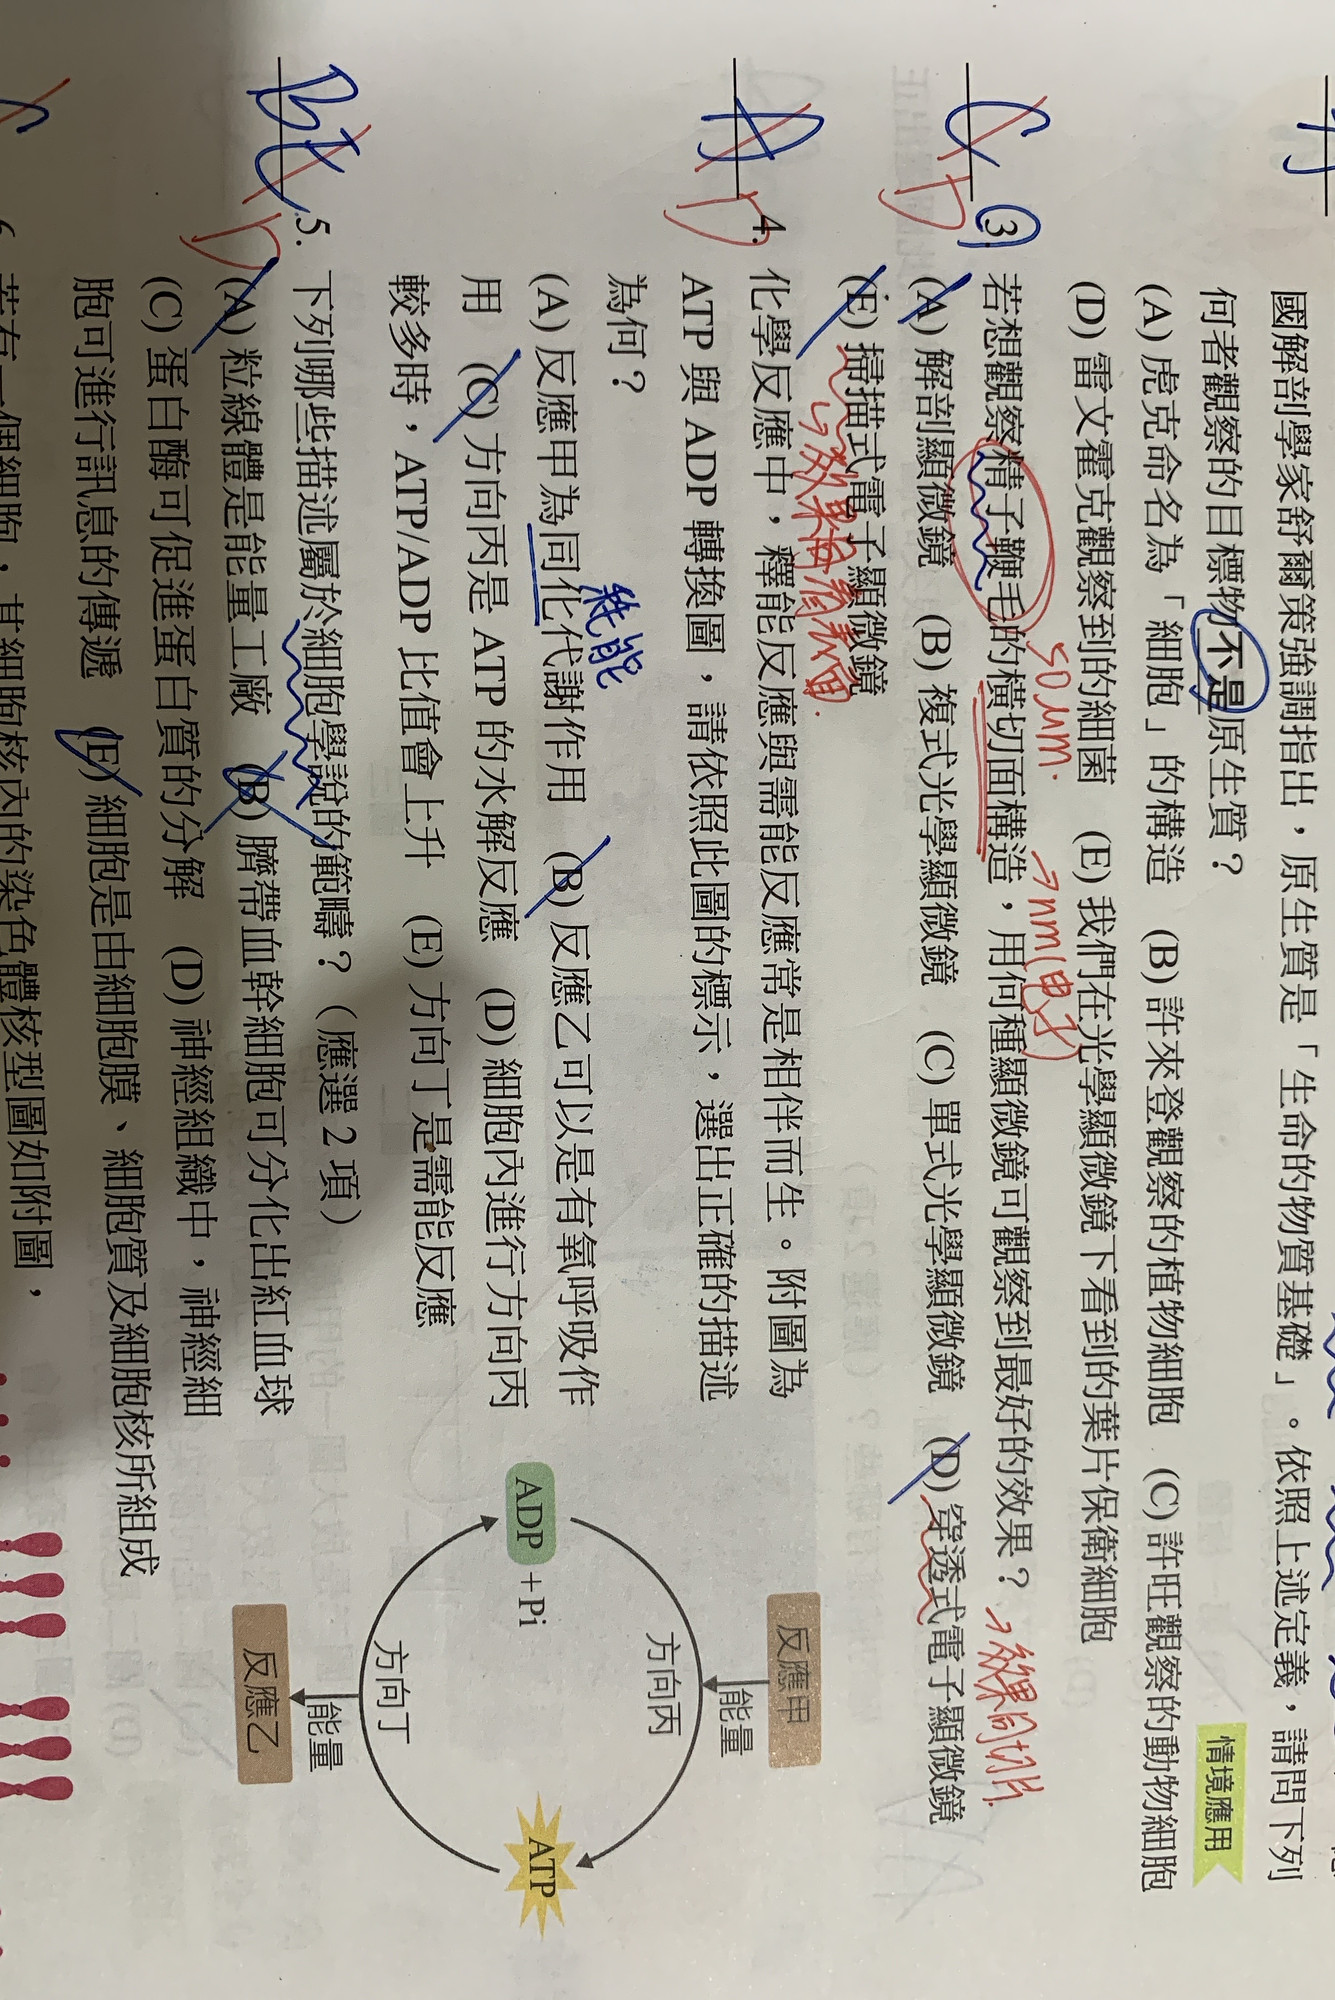 國解剖學家舒爾策強調指出，原生質是「生命的物質基礎」。依照上述定義，請問下列
何者觀察的目標物不是原生質？ 情境應用
(A) 虎克命名為「細胞」的構造 (B) 許來登觀察的植物細胞 (C) 許旺觀察的動物細胞
(D) 雷文霍克觀察到的細菌 (E) 我們在光學顯微鏡下看到的葉片保衛細胞
50μm.
→nm(電子)
C D 3. 若想觀察精子鞭毛的橫切面構造，用何種顯微鏡可觀察到最好的效果？
→效果同切片.
(A) 解剖顯微鏡 (B) 複式光學顯微鏡 (C) 單式光學顯微鏡 (D) 穿透式電子顯微鏡
(E) 掃描式電子顯微鏡
→效果同看表面.
A D 4. 化學反應中，釋能反應與需能反應常是相伴而生。附圖為
ATP 與 ADP 轉換圖，請依照此圖的標示，選出正確的描述
為何？
耗能
(A) 反應甲為同化代謝作用 (B) 反應乙可以是有氧呼吸作
用 (C) 方向丙是 ATP 的水解反應 (D) 細胞內進行方向丙
較多時，ATP/ADP 比值會上升 (E) 方向丁是需能反應
反應甲
能量
方向丙
ADP +Pi
ATP
方向丁
能量
反應乙
BE D 5. 下列哪些描述屬於細胞學說的範疇？（應選 2 項）
(A) 粒線體是能量工廠 (B) 臍帶血幹細胞可分化出紅血球
(C) 蛋白酶可促進蛋白質的分解 (D) 神經組織中，神經細
胞可進行訊息的傳遞 (E) 細胞是由細胞膜、細胞質及細胞核所組成
6. 若有一個細胞，其細胞核內的染色體核型圖如附圖，